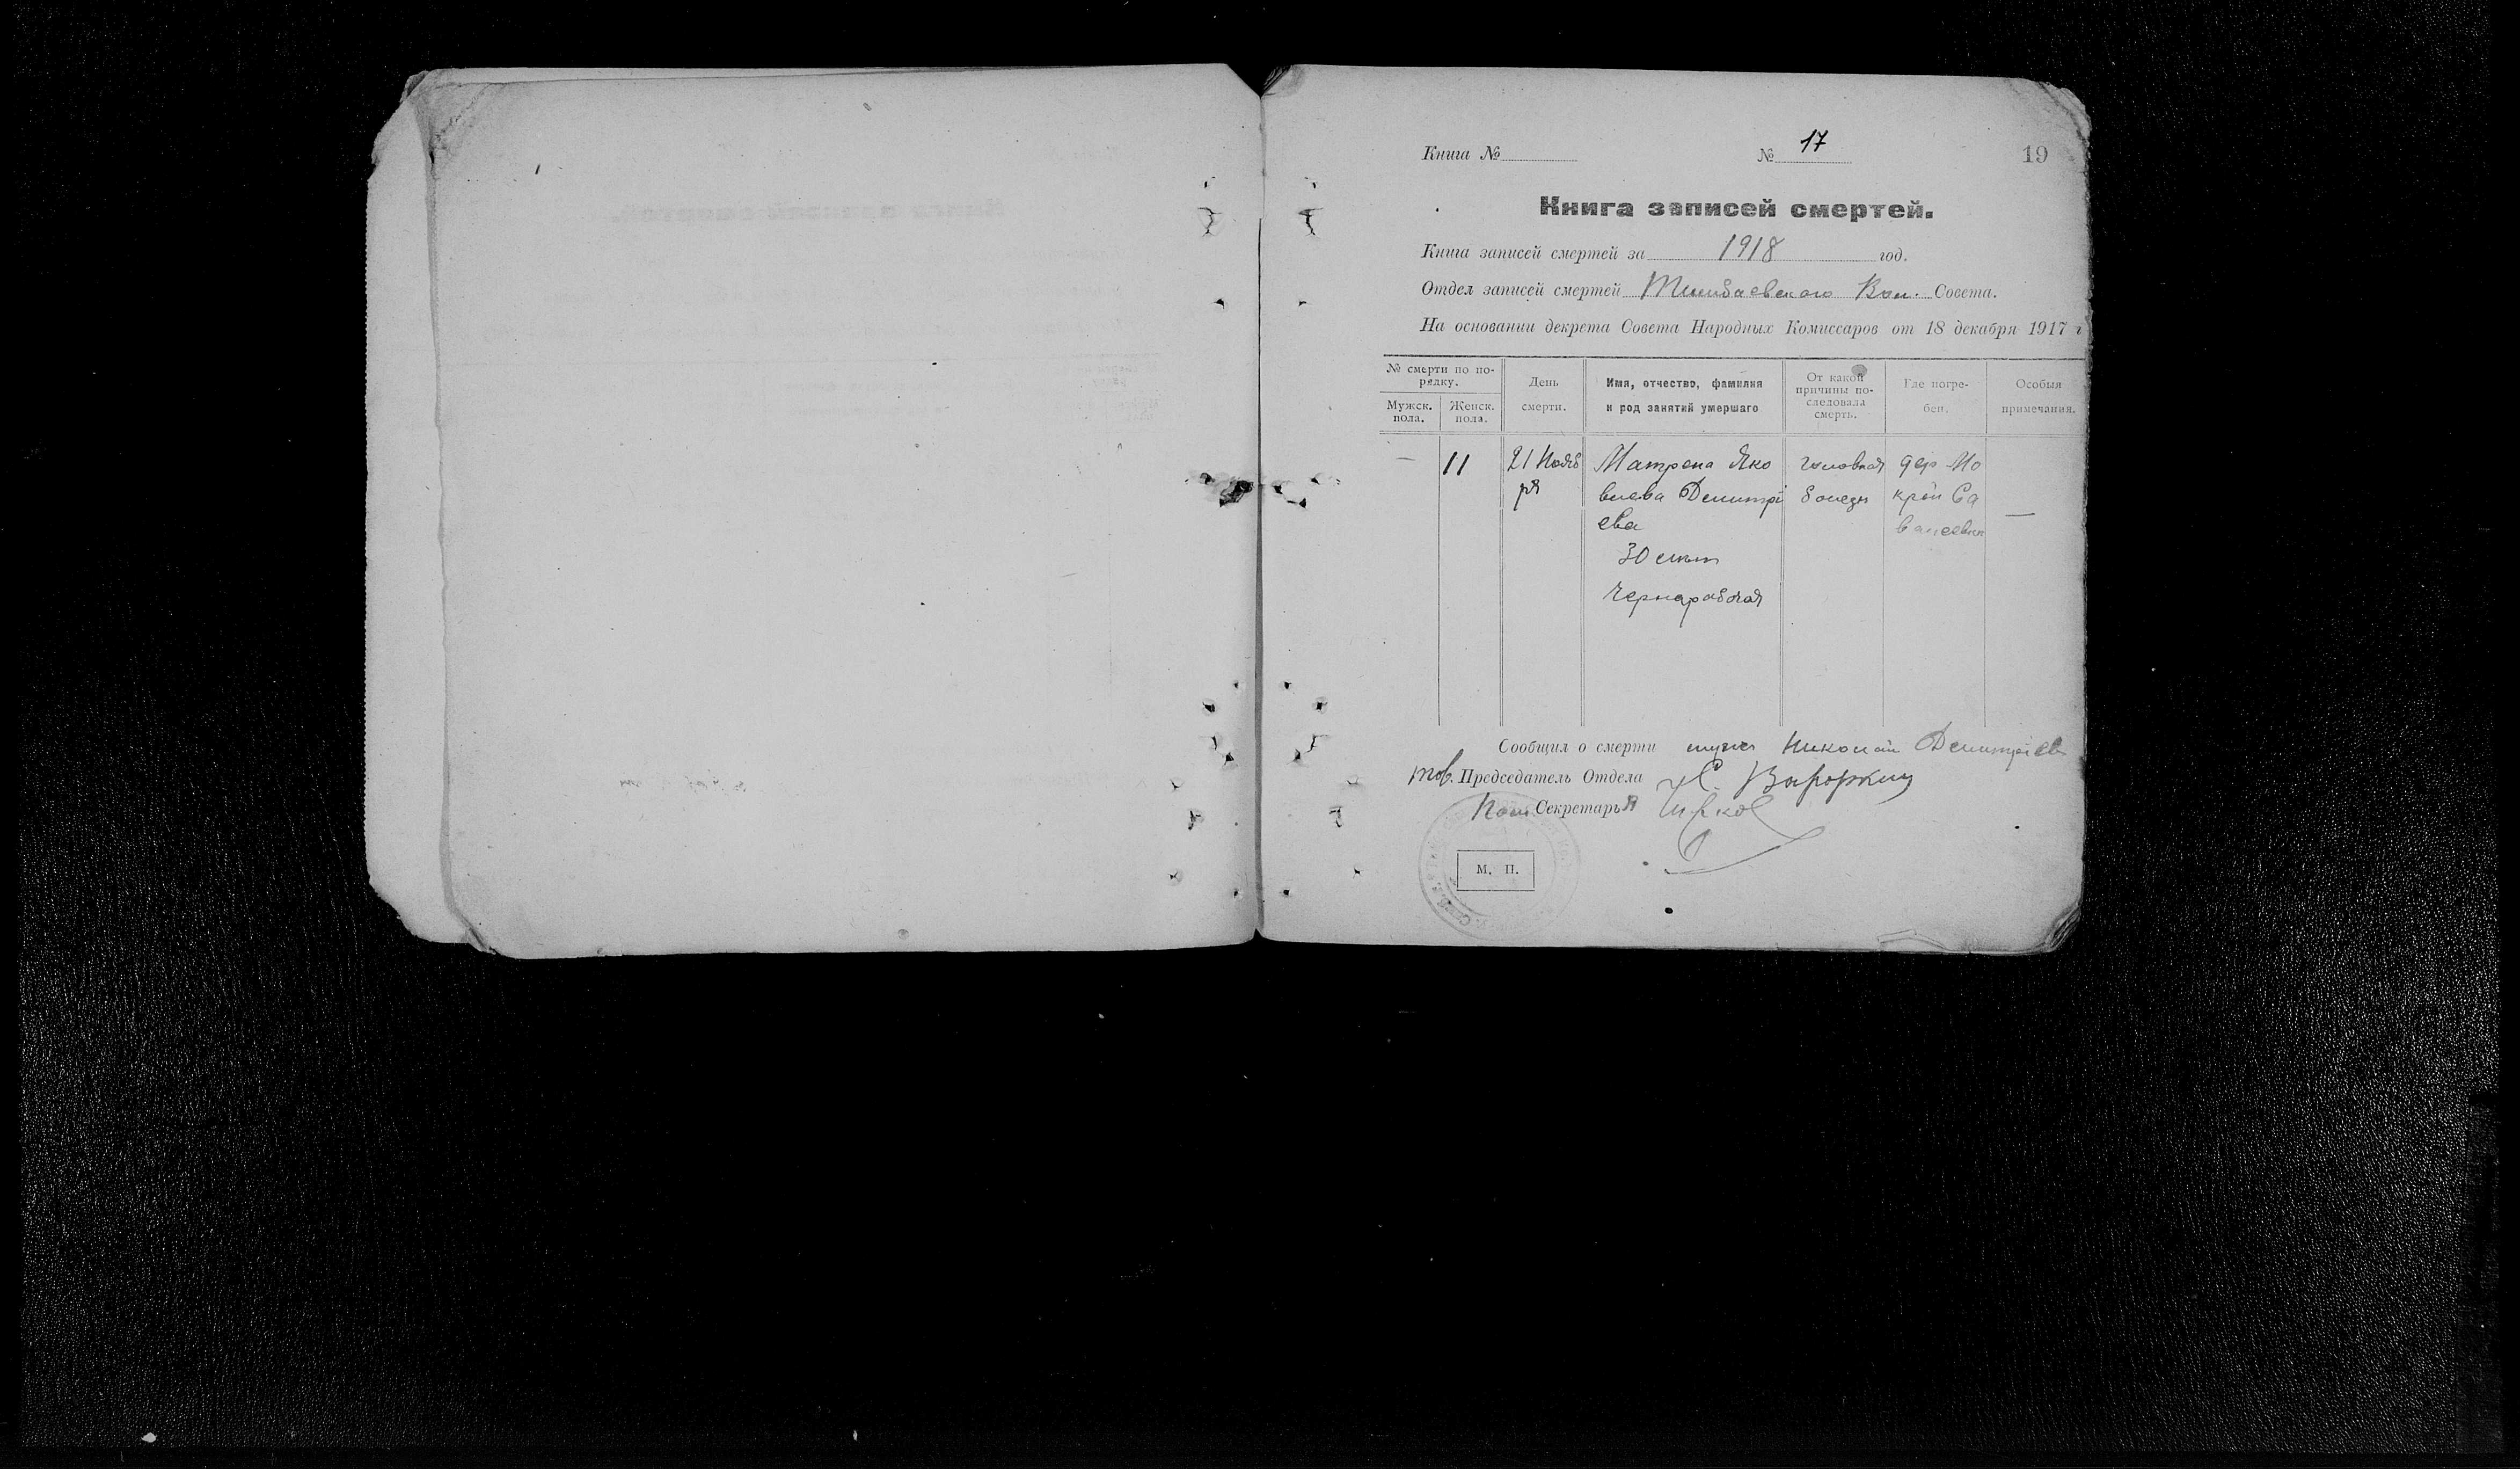 Книга № № 17 19
Книга записей смертей.
Книга записей смертей за 1918 год.
Отдел записей смертей Тимбаевского Вол. Совета.
На основании декрета Совета Народных Комиссаров от 18 декабря 1917 г
№ смерти по по-
рядку.
Мужск.
пола.
Женск.
пола.
День
смерти.
Имя, отчество, фамилия
и род занятий умершаго
От какой
причины по-
следовала
смерть.
Где погре-
бен.
Особыя
примечания.
— 11
21 Нояб
ря
Матрена Яко
влева Демитрі
ева
30 лет
Чернарабочая
головная
болезн
дер Мо
крой Са
—
Сообщил о смерти муже Николай Демитріев
Тов. Председатель Отдела
Пом Секретарья
М. П.